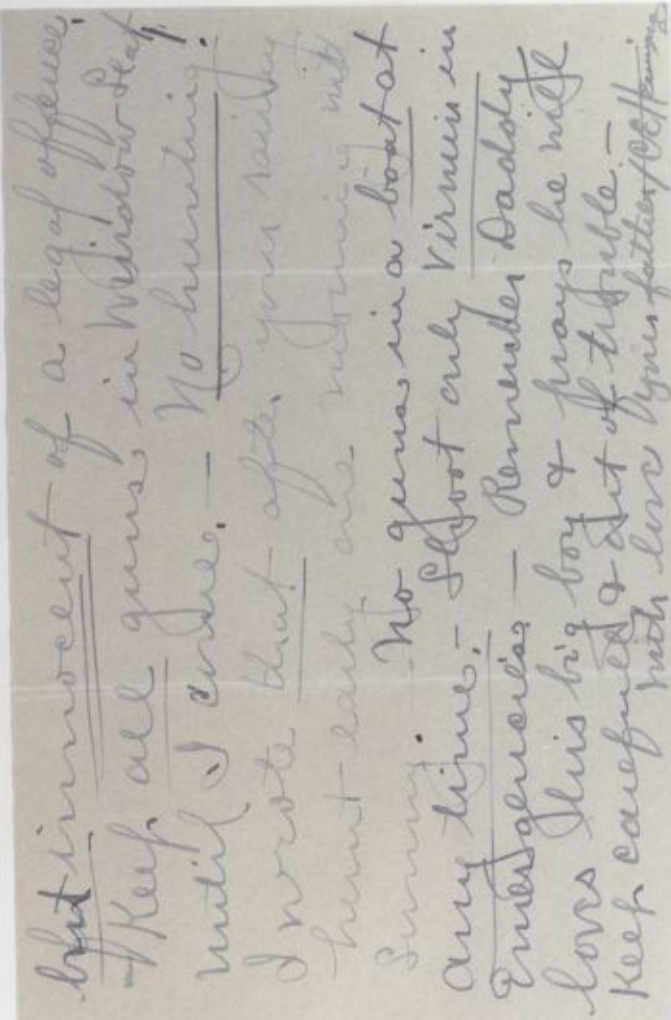 but innocent of a legal offence.
- Keep all guns in Window Seat
until I come. - No hunting.
I wrote that after your saying
hunt early one morning with
Sunny. No guns in a boat at
any time. - Shoot only Virmin in
Emergencies - Remember Daddy
loves this big boy & prays he will
Keep careful & out of trouble. -
With love Your father